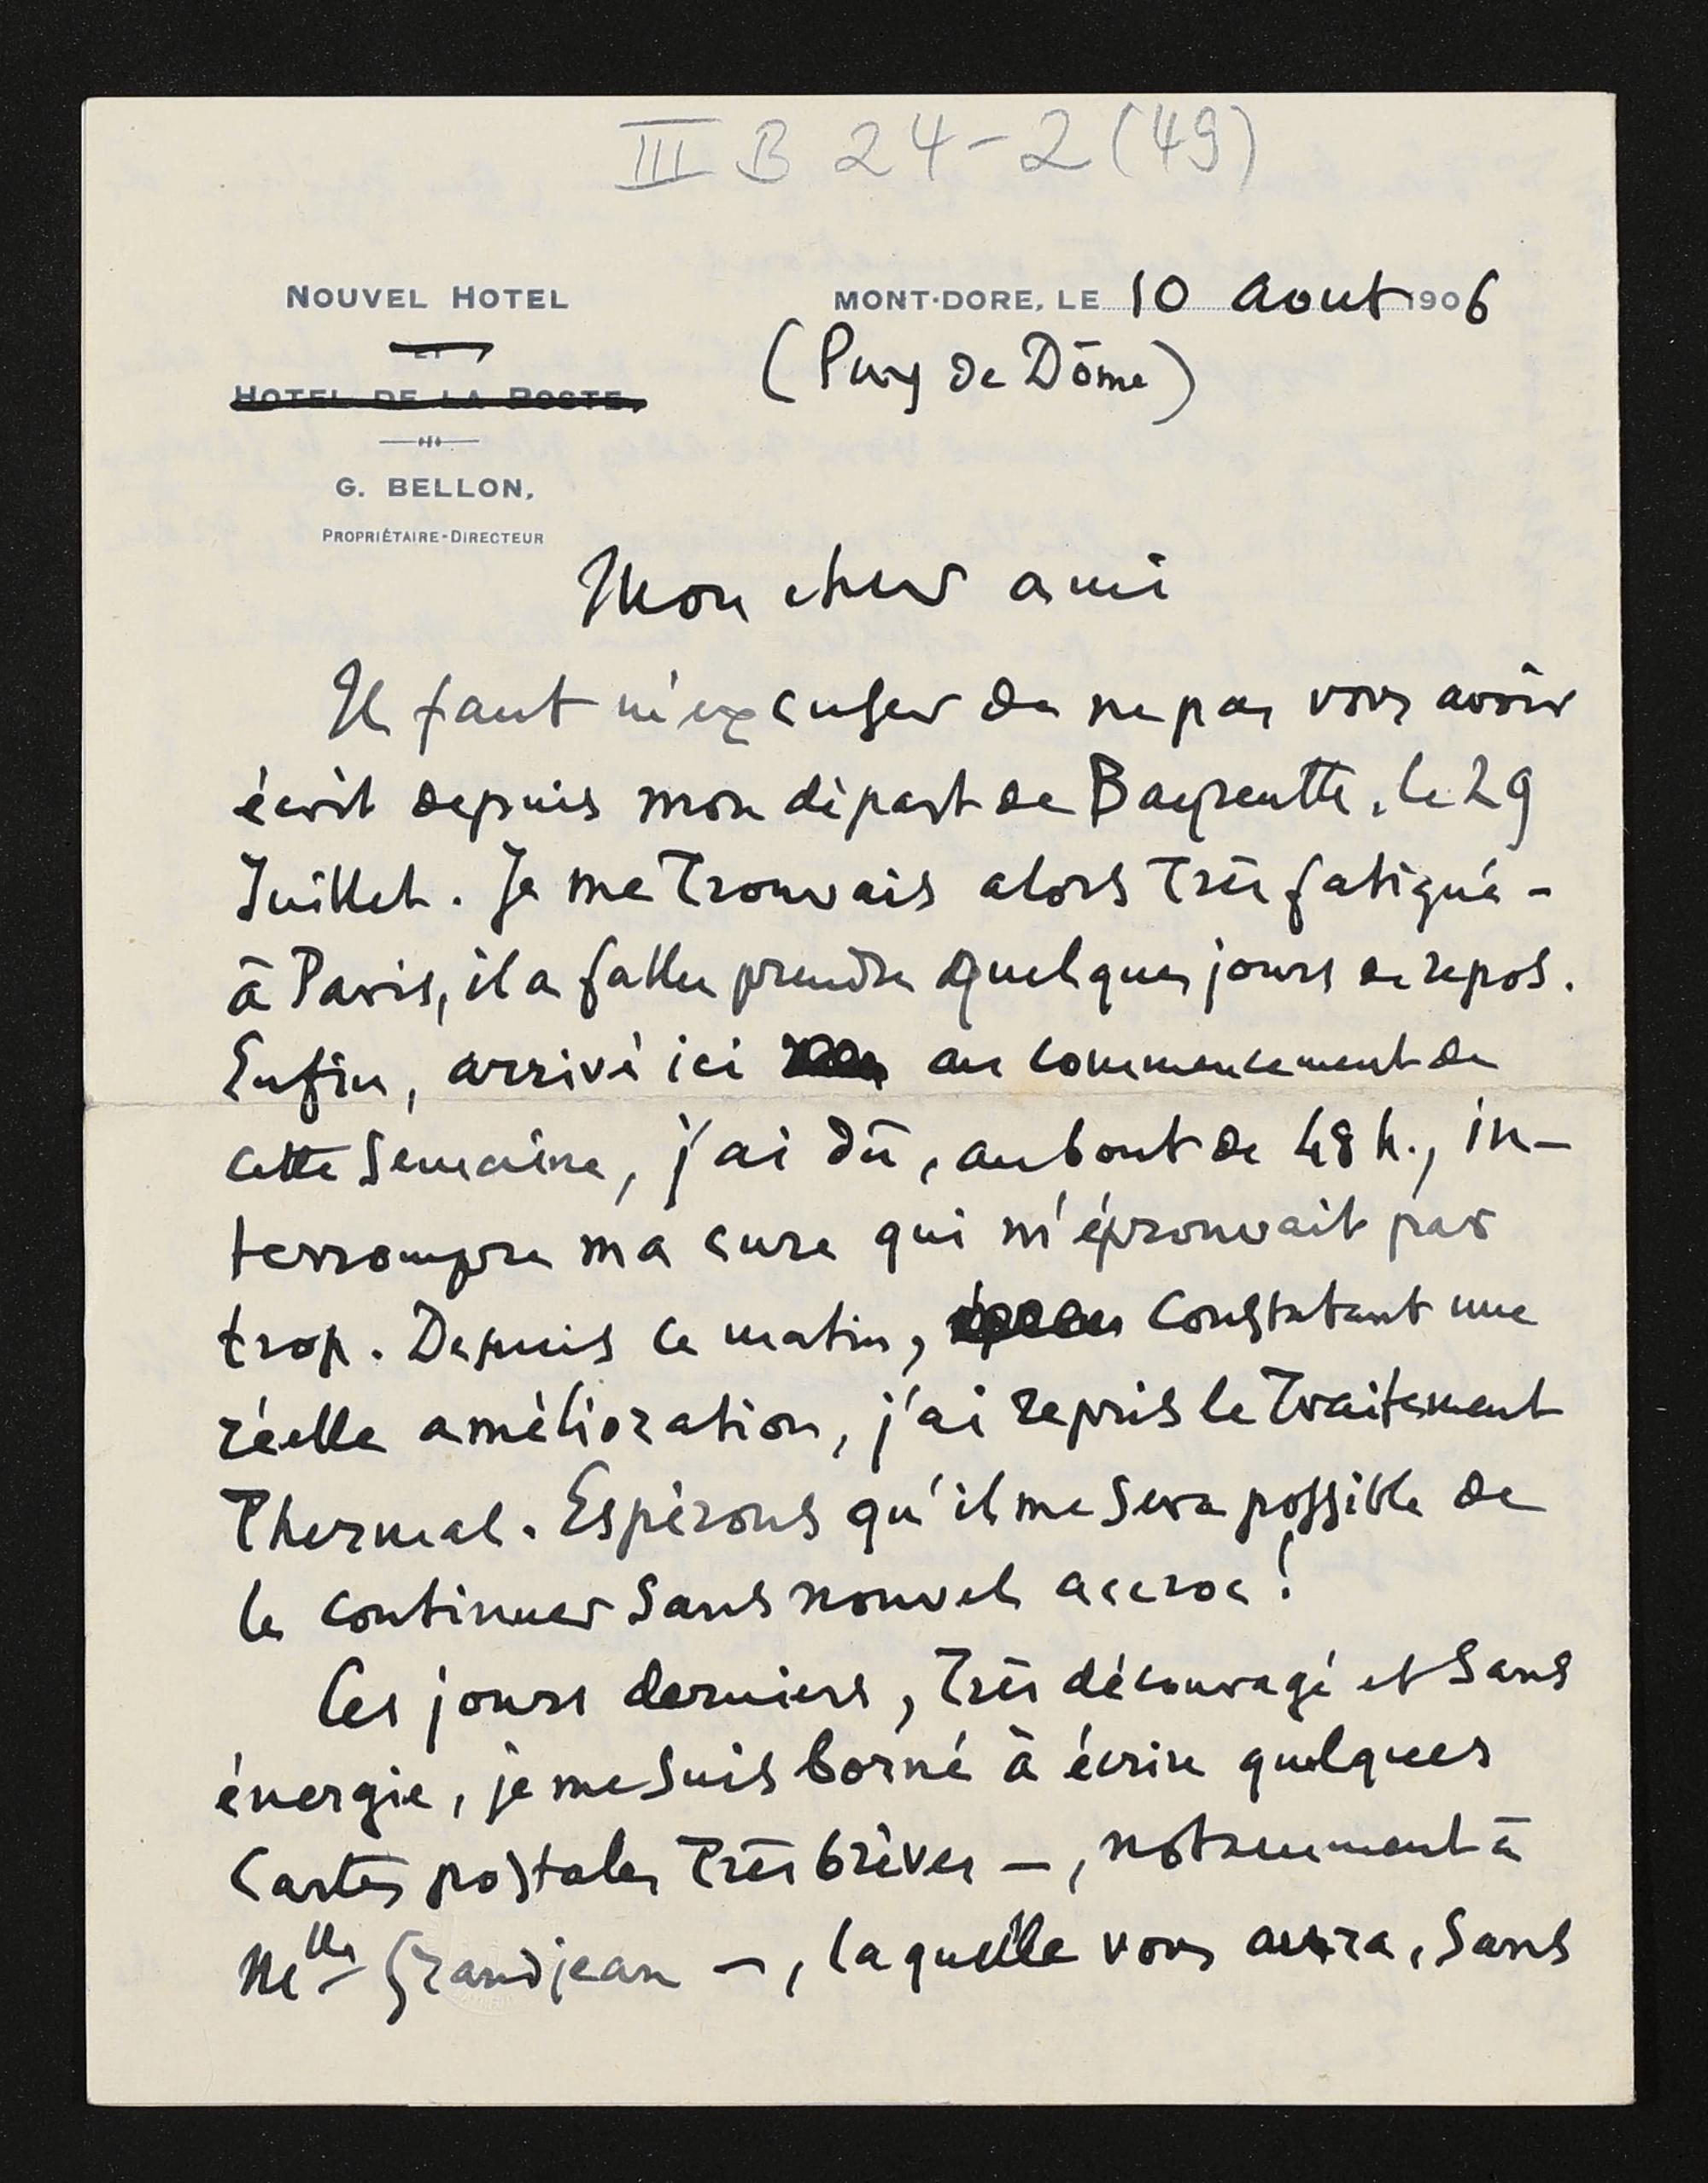 III B 24-2 (49)
NOUVEL HOTEL
ET
HOTEL DE LA POSTE.
G. BELLON,
PROPRIÉTAIRE-DIRECTEUR
MONT-DORE, LE 10 Aout 1906
(Puy de Dôme)
Mon cher ami
Il faut m'excuser de ne pas vous avoir
écrit depuis mon départ de Bayreuth, le 29
Juillet. Je me trouvais alors très fatigué -
à Paris, il a fallu prendre quelques jours de repos.
Enfin, arrivé ici au commencement de
cette semaine, j'ai dû, au bout de 48 h., in-
terrompre ma cure qui m'éprouvait par
trop. Depuis ce matin, constatant une
réelle amélioration, j'ai repris le traitement
thermal. Espérons qu'il me sera possible de
le continuer sans nouvel accroc!
Ces jours derniers, très découragé et sans
énergie, je me suis borné à écrire quelques
cartes postales très brèves -, notamment à
Melle Grandjean -, laquelle vous aura, sans